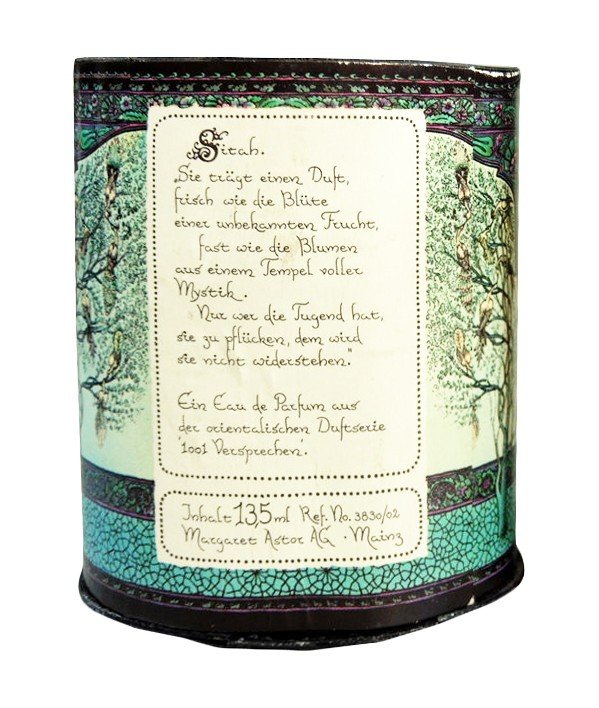 Sitah.
„Sie trägt einen Duft,
frisch wie die Blüte
einer unbekannten Frucht,
fast wie die Blumen
aus einem Tempel voller
Mystik.
Nur wer die Tugend hat,
sie zu pflücken, dem wird
sie nicht widerstehen."
Ein Eau de Parfum aus
der orientalischen Duftserie
'1001 Versprechen'.
Inhalt 13,5 ml Ref. No. 3830/02
Margaret Astor AG · Mainz